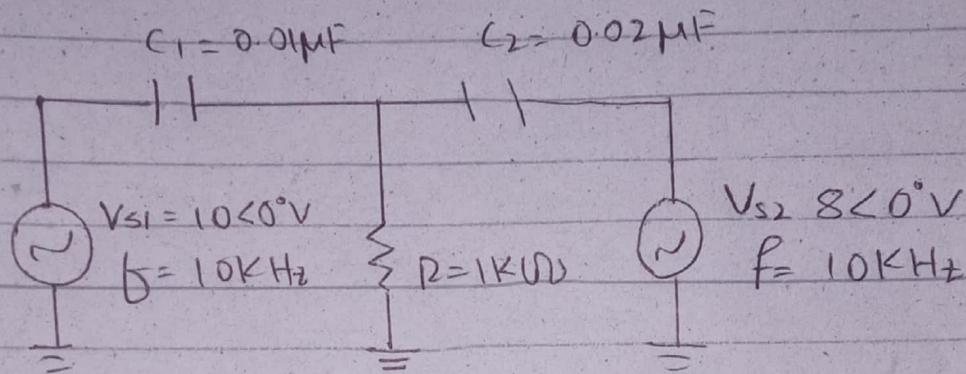 C1 = 0.01μF C2 = 0.02μF
Vs1 = 10<0°V
f = 10KHz
R=1KΩ
Vs2 8<0°V
f= 10KHz